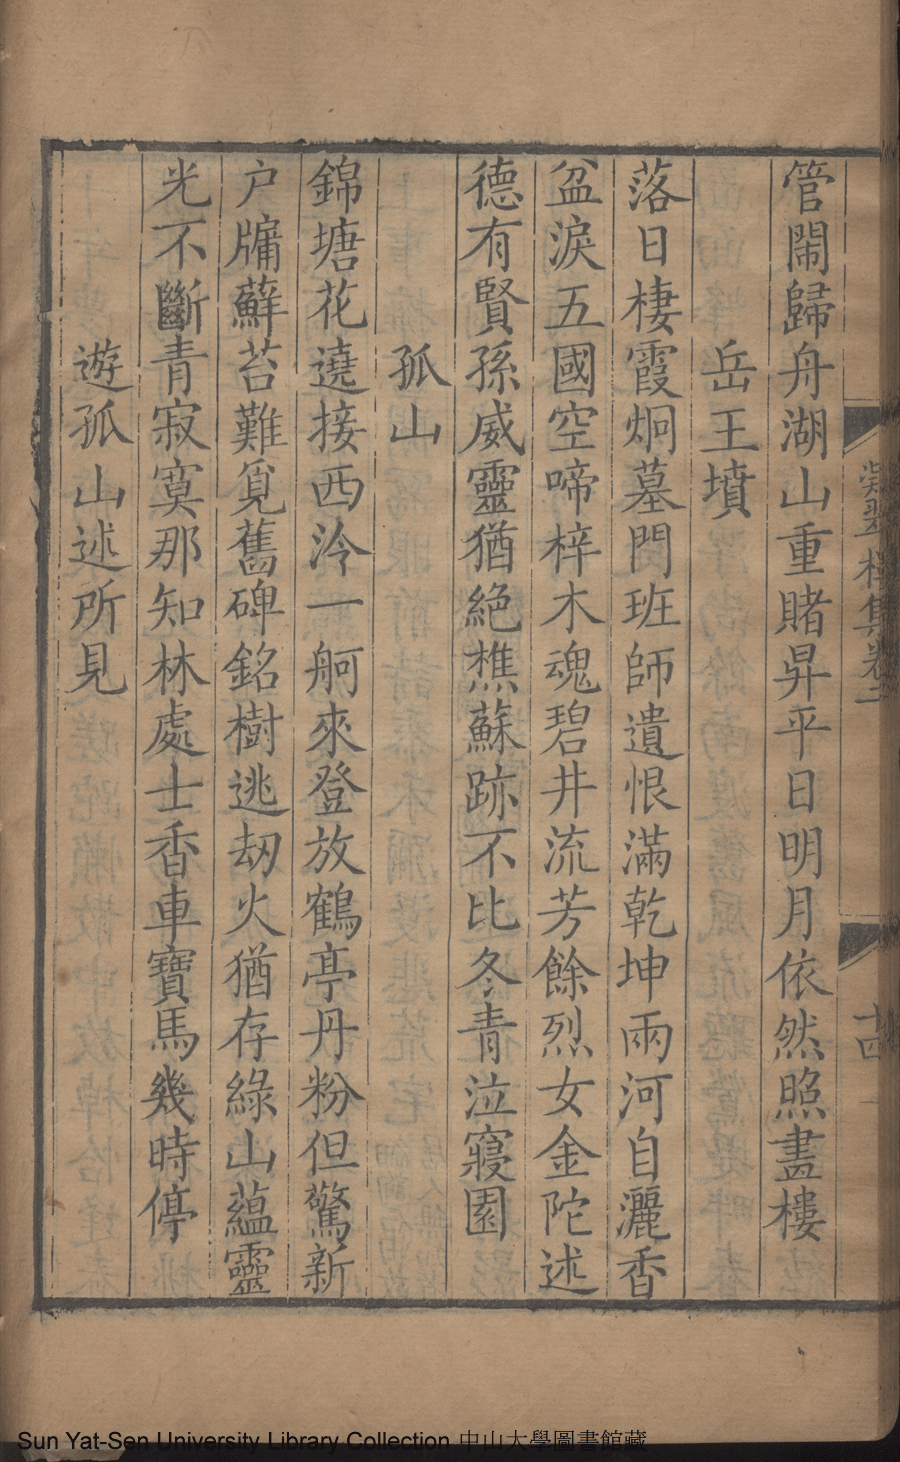 管閙歸舟湖山重賭昇平日明月依然照畵樓
岳王墳
落日棲霞炯墓門班師遺恨滿乾坤兩河自灑香
盆淚五國空啼梓木魂碧井流芳餘烈女金陀述
德有賢孫威靈猶絶樵蘇跡不比冬青泣寢園
孤山
錦塘花遶接西泠一舸來登放鶴亭丹粉但驚新
户牗蘚苔難覓舊碑銘樹逃刼火猶存綠山蘊靈
光不斷青寂寞那知林處士香車寶馬幾時停
遊孤山述所見
翠樓集卷二
十四
Sun Yat-Sen University Library Collection 中山大學圖書館藏